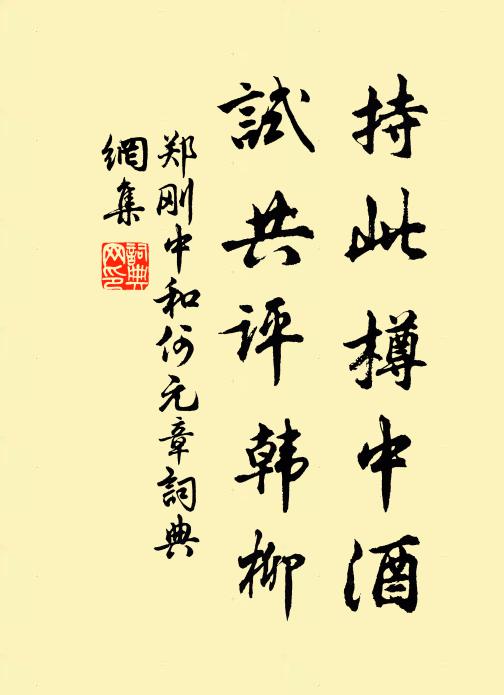 持此樽中酒
試共评韩柳
郑刚中和何元章詞典
網集
詞典網印